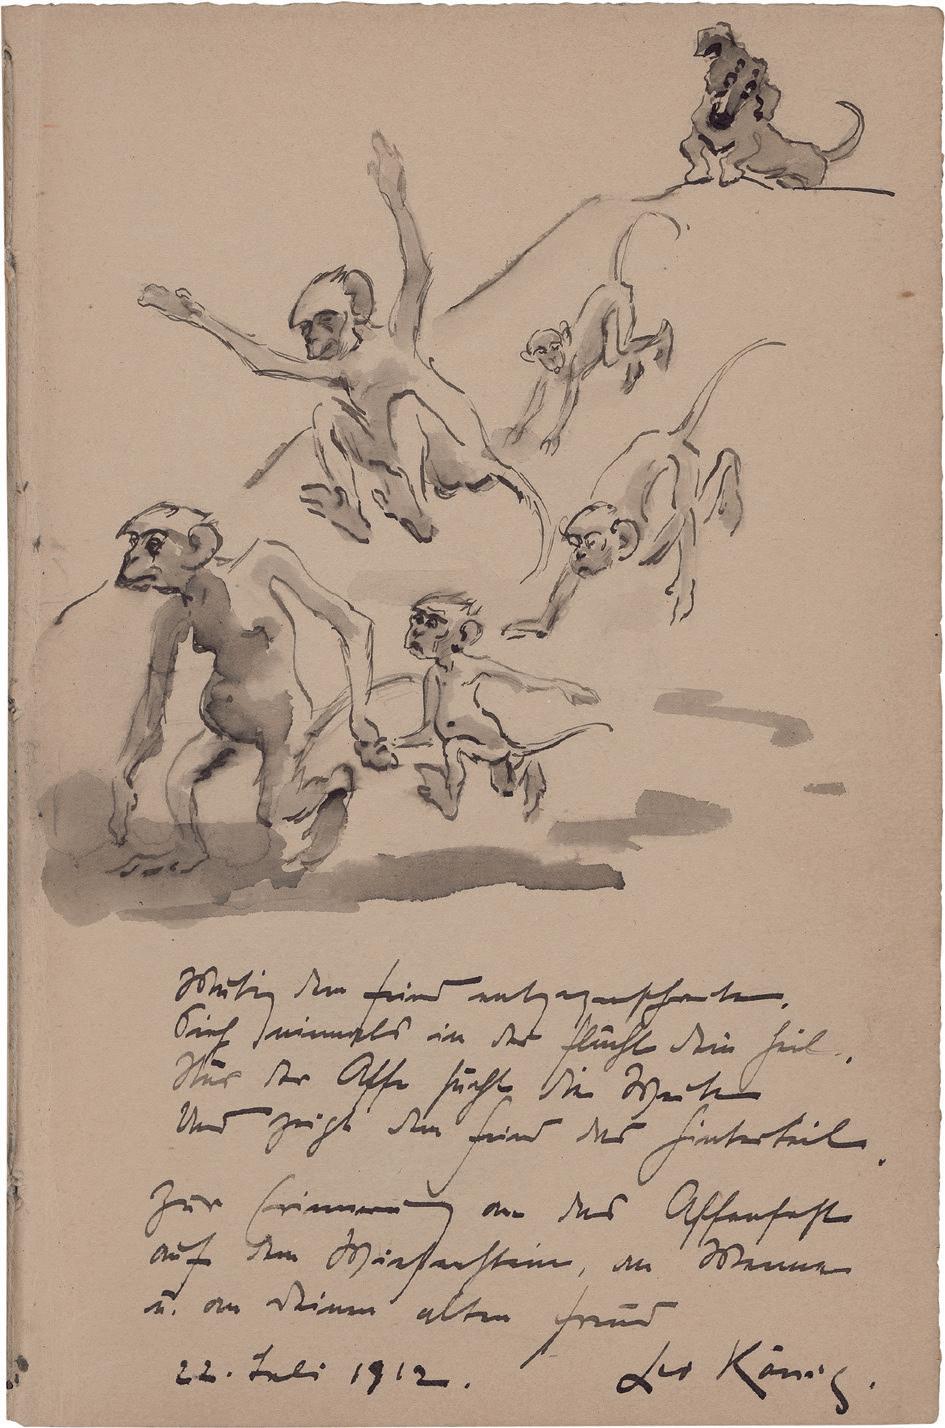 Mutig dem Feind entgegenschreiten,
Sieh niemals in der Flucht dein Heil,
Nur der Affe sucht die Weiten
Und zeigt dem Feind das Hinterteil.
Zur Erinnerung an das Affenfest
auf dem, an
u. an deinen alten Freund
22. Juli 1912.
Leo König.